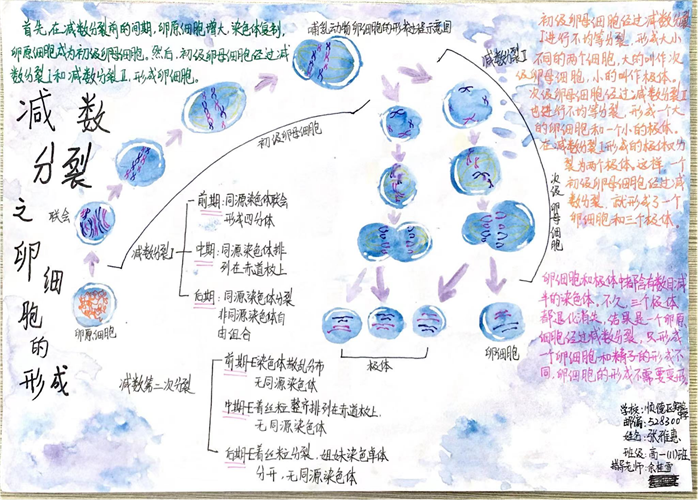 首先,在减数分裂前的间期,卵原细胞增大,染色体复制,
卵原细胞成为初级卵母细胞。然后,初级卵母细胞经过减
数分裂I和减数分裂Ⅱ,形成卵细胞。
哺乳动物卵细胞的形成过程示意图
减数
分裂
之
卵细胞的形成
联会
卵原细胞
初级卵母细胞
减数分裂I
次级卵母细胞
极体
卵细胞
减数分裂I
前期:同源染色体联会
形成四分体
中期:同源染色体排
列在赤道板上
后期:同源染色体分裂
非同源染色体自
由组合
减数第二次分裂
前期-E染色体散乱分布
无同源染色体
中期-E着丝粒整齐排列在赤道板上,
无同源染色体
后期-E着丝粒分裂,姐妹染色单体
分开,无同源染色体
初级卵母细胞经过减数分裂
I进行不均等分裂,形成大小
不同的两个细胞,大的叫作次
级卵母细胞,小的叫作极体。
次级卵母细胞经过减数分裂Ⅱ
也进行不均等分裂,形成一个大
的卵细胞和一个小的极体。
在减数分裂I形成的极体
裂为两个极体。这样,一个
初级卵母细胞经过减
数分裂,就形成了一个
卵细胞和三个极体。
卵细胞和极体中都含有数目减
半的染色体。不久,三个极体
都退化消失,结果是一个卵原
细胞经过减数分裂,只形成
一个卵细胞和精子的形成不
同,卵细胞的形成不需要变形
学校:
邮编:528300
姓名:张雅惠
班级:高一(11)班
指导老师: